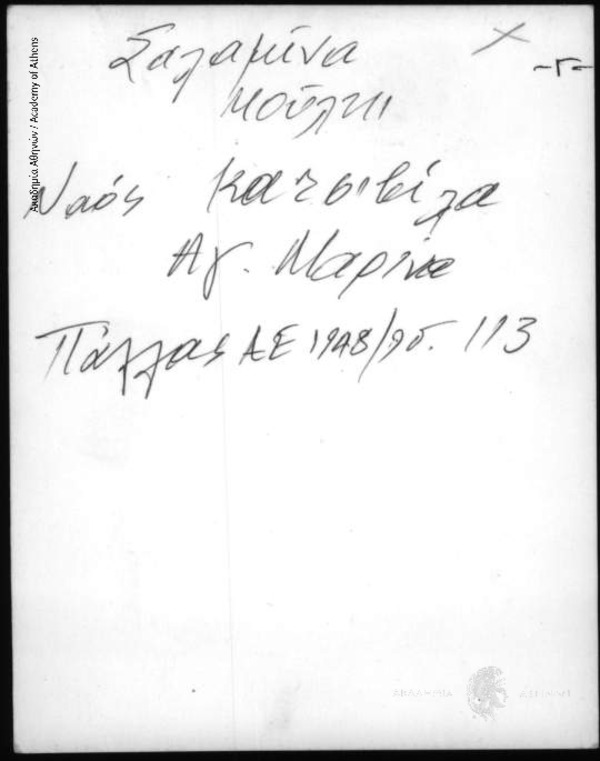 Σαλαμίνα
-Γ-
Μούλκι
Ναός Κατσιβίλα
Αγ. Μαρίνα
Πάλλας ΑΕ 1948/95. 113
Ακαδημία Αθηνών / Academy of Athens
ΑΚΑΔΗΜΙΑ ΑΘΗΝΩΝ